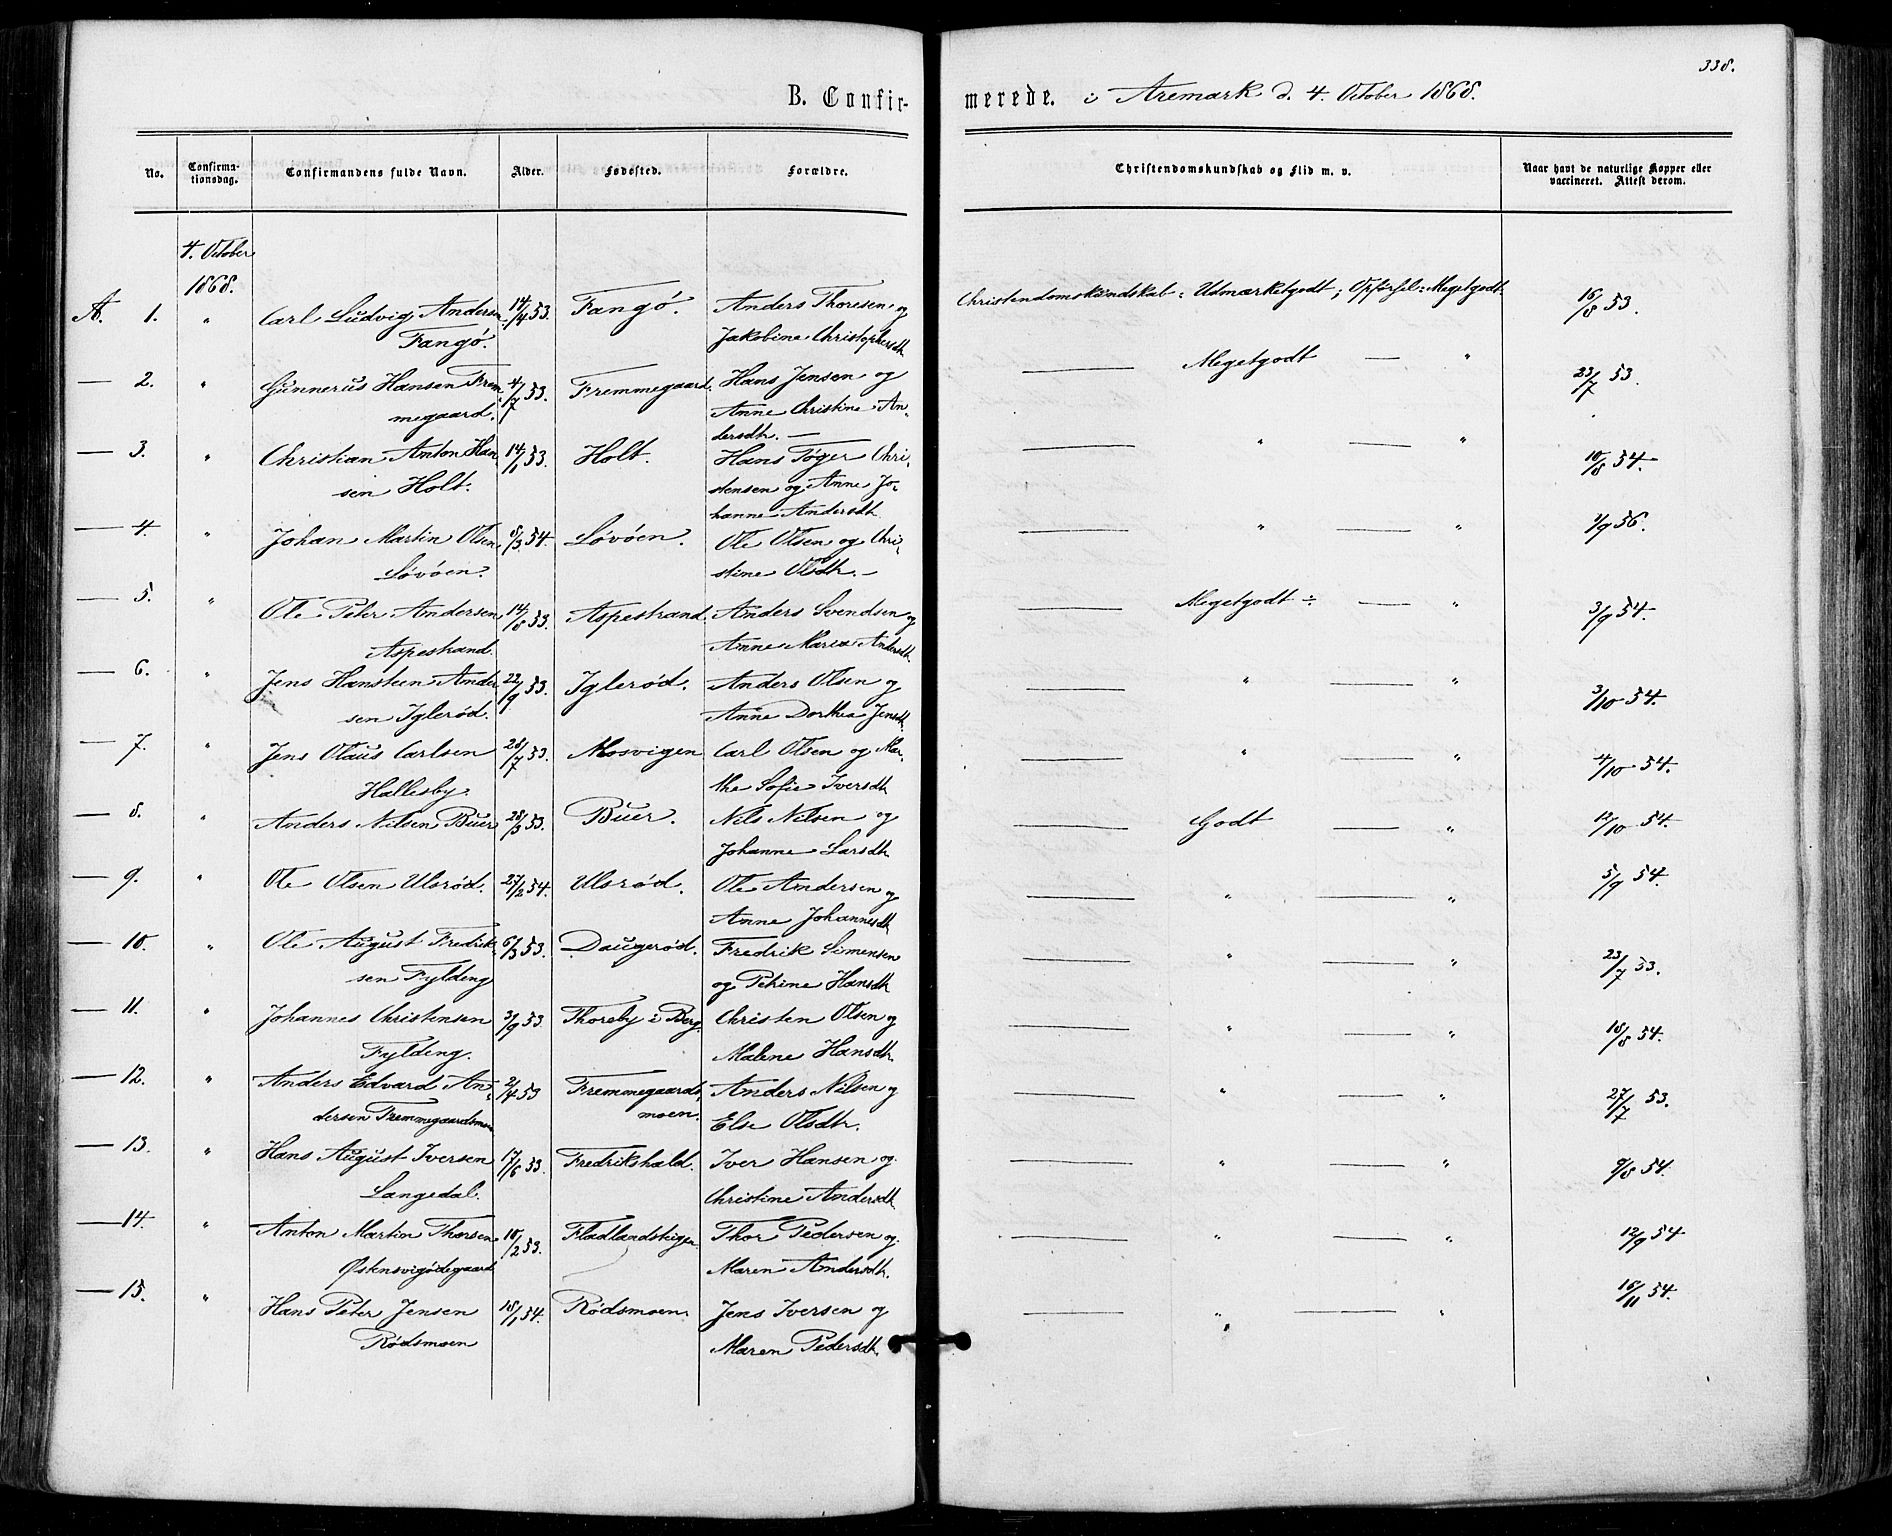 338.
B. Confirmerede. i Aremark d. 4. October 1868.
No. Confirmationsdag. Confirmandens fulde Navn. Alder. Fødested. Forældre. Christendomskundskab og Flid m. v. Naar havt de naturlige Kopper eller vaccineret. Attest derom.
4. October
1868.
A. 1. " Carl Ludvig Andersen 14/4 53. Fangö. Anders Thoresen og Christendomskundskab = Udmærketgodt; Opførsel = Megetgodt. 16/8 53.
Fangö. Jakobine Christophersdt.
— 2. " Gunnerus Hansen Frem- 4/7 53. Fremmegaard. Hans Jensen og — Megetgodt — " 23/7 53.
megaard. Anne Christine An-
dersdtr. —
— 3. " Christian Anton Han- 14/1 53. Holt. Hans Töger Chri- — " — " 10/8 54.
sen Holt. stensen og Anne Jo-
hanne Andersdtr.
— 4. " Johan Martin Olsen 8/3 54. Lövöen. Ole Olsen og Chri- — " — " 2/9 56.
Lövöen. stine Olsdtr. —
— 5. " Ole Peter Andersen 14/8 53. Aspestrand. Anders Svendsen og — Megetgodt ÷ — " 3/9 54.
Aspestrand. Anne Maria Andersdt
— 6. " Jens Hansteen Ander- 22/9 53. Iglerød. Anders Olsen og — " — " 3/10 54.
sen Iglerød. Anne Dorthea Jensdt
— 7. " Jens Olaus Carlsen 28/7 53. Mosvigen Carl Olsen og Mar- — " — " 4/10 54.
Hallesby. the Sofie Iversdt.
— 8. " Anders Nilsen Buer 28/3 53. Buer. Nils Nilsen og — Godt — " 12/10 54.
Johanne Larsdt.
— 9. " Ole Olsen Ulsrød. 27/2 54. Ulsrød. Ole Andersen og — " — " 5/9 54.
Anne Johannesdt
— 10. " Ole August Fredrik- 6/3 53. Daugerød. Fredrik Simensen — " — " 23/7 53.
sen Fylding og Petrine Hansdt.
— 11. " Johannes Christensen 3/9 53. Thoreby i Berg. Christen Olsen og — " — " 18/8 54.
Fyldeng. Malene Hansdt.
— 12. " Anders Edvard An- 2/4 53 Fremmegaards- Anders Nilsen og — " — " 27/7 53.
dersen Fremmegaardsmoen moen. Else Olsdtr.
— 13. " Hans August Iversen 17/6 53. Fredrikshald. Iver Hansen og — " — " 9/8 54.
Langedal. Christine Andersdt.
— 14. " Anton Martin Thorsen 10/2 53. Fladlandstigen Thor Pedersen og — " — " 12/9 54
Øskensvigödegaard Maren Andersdtr.
— 15. " Hans Peter Jensen 18/1 54. Rødsmoen. Jens Iversen og — " — " 16/11 54.
Rødsmoen Maren Pedersdtr.